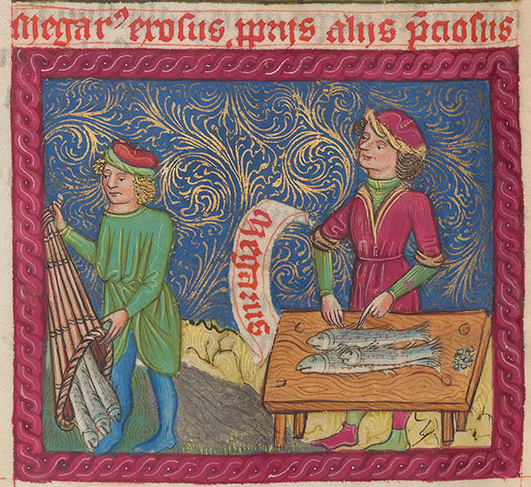 megarꝰ exosus ꝓprijs alijs p̄ciosus
Megarus